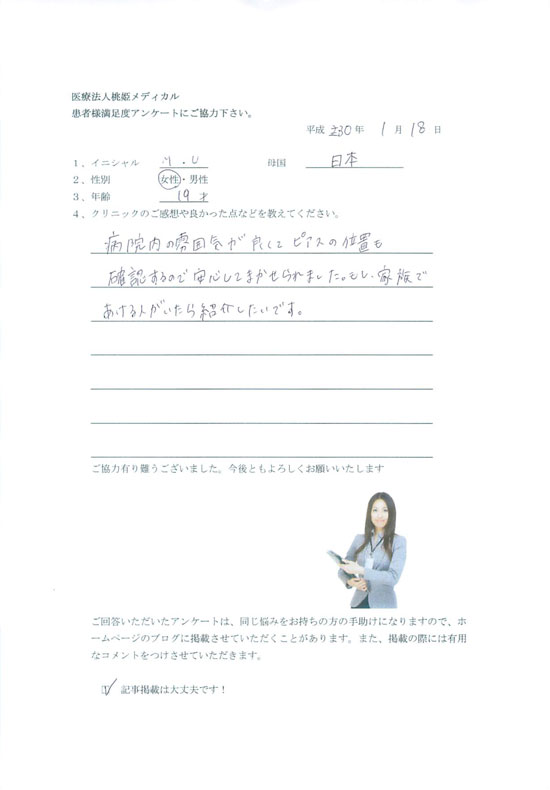 医療法人桃姫メディカル
患者様満足度アンケートにご協力下さい。
平成 30 年 1 月 18 日
1、イニシャル M.U 母国 日本
2、性別 女性・男性
3、年齢 19才
4、クリニックのご感想や良かった点などを教えてください。
病院内の雰囲気が良くて ピアスの位置も
確認するので安心してまかせられました。もし、家族で
あける人がいたら紹介したいです。
ご協力有り難うございました。今後ともよろしくお願いいたします
ご回答いただいたアンケートは、同じ悩みをお持ちの方の手助けになりますので、ホ
ームページのブログに掲載させていただくことがあります。また、掲載の際には有用
なコメントをつけさせていただきます。
記事掲載は大丈夫です！